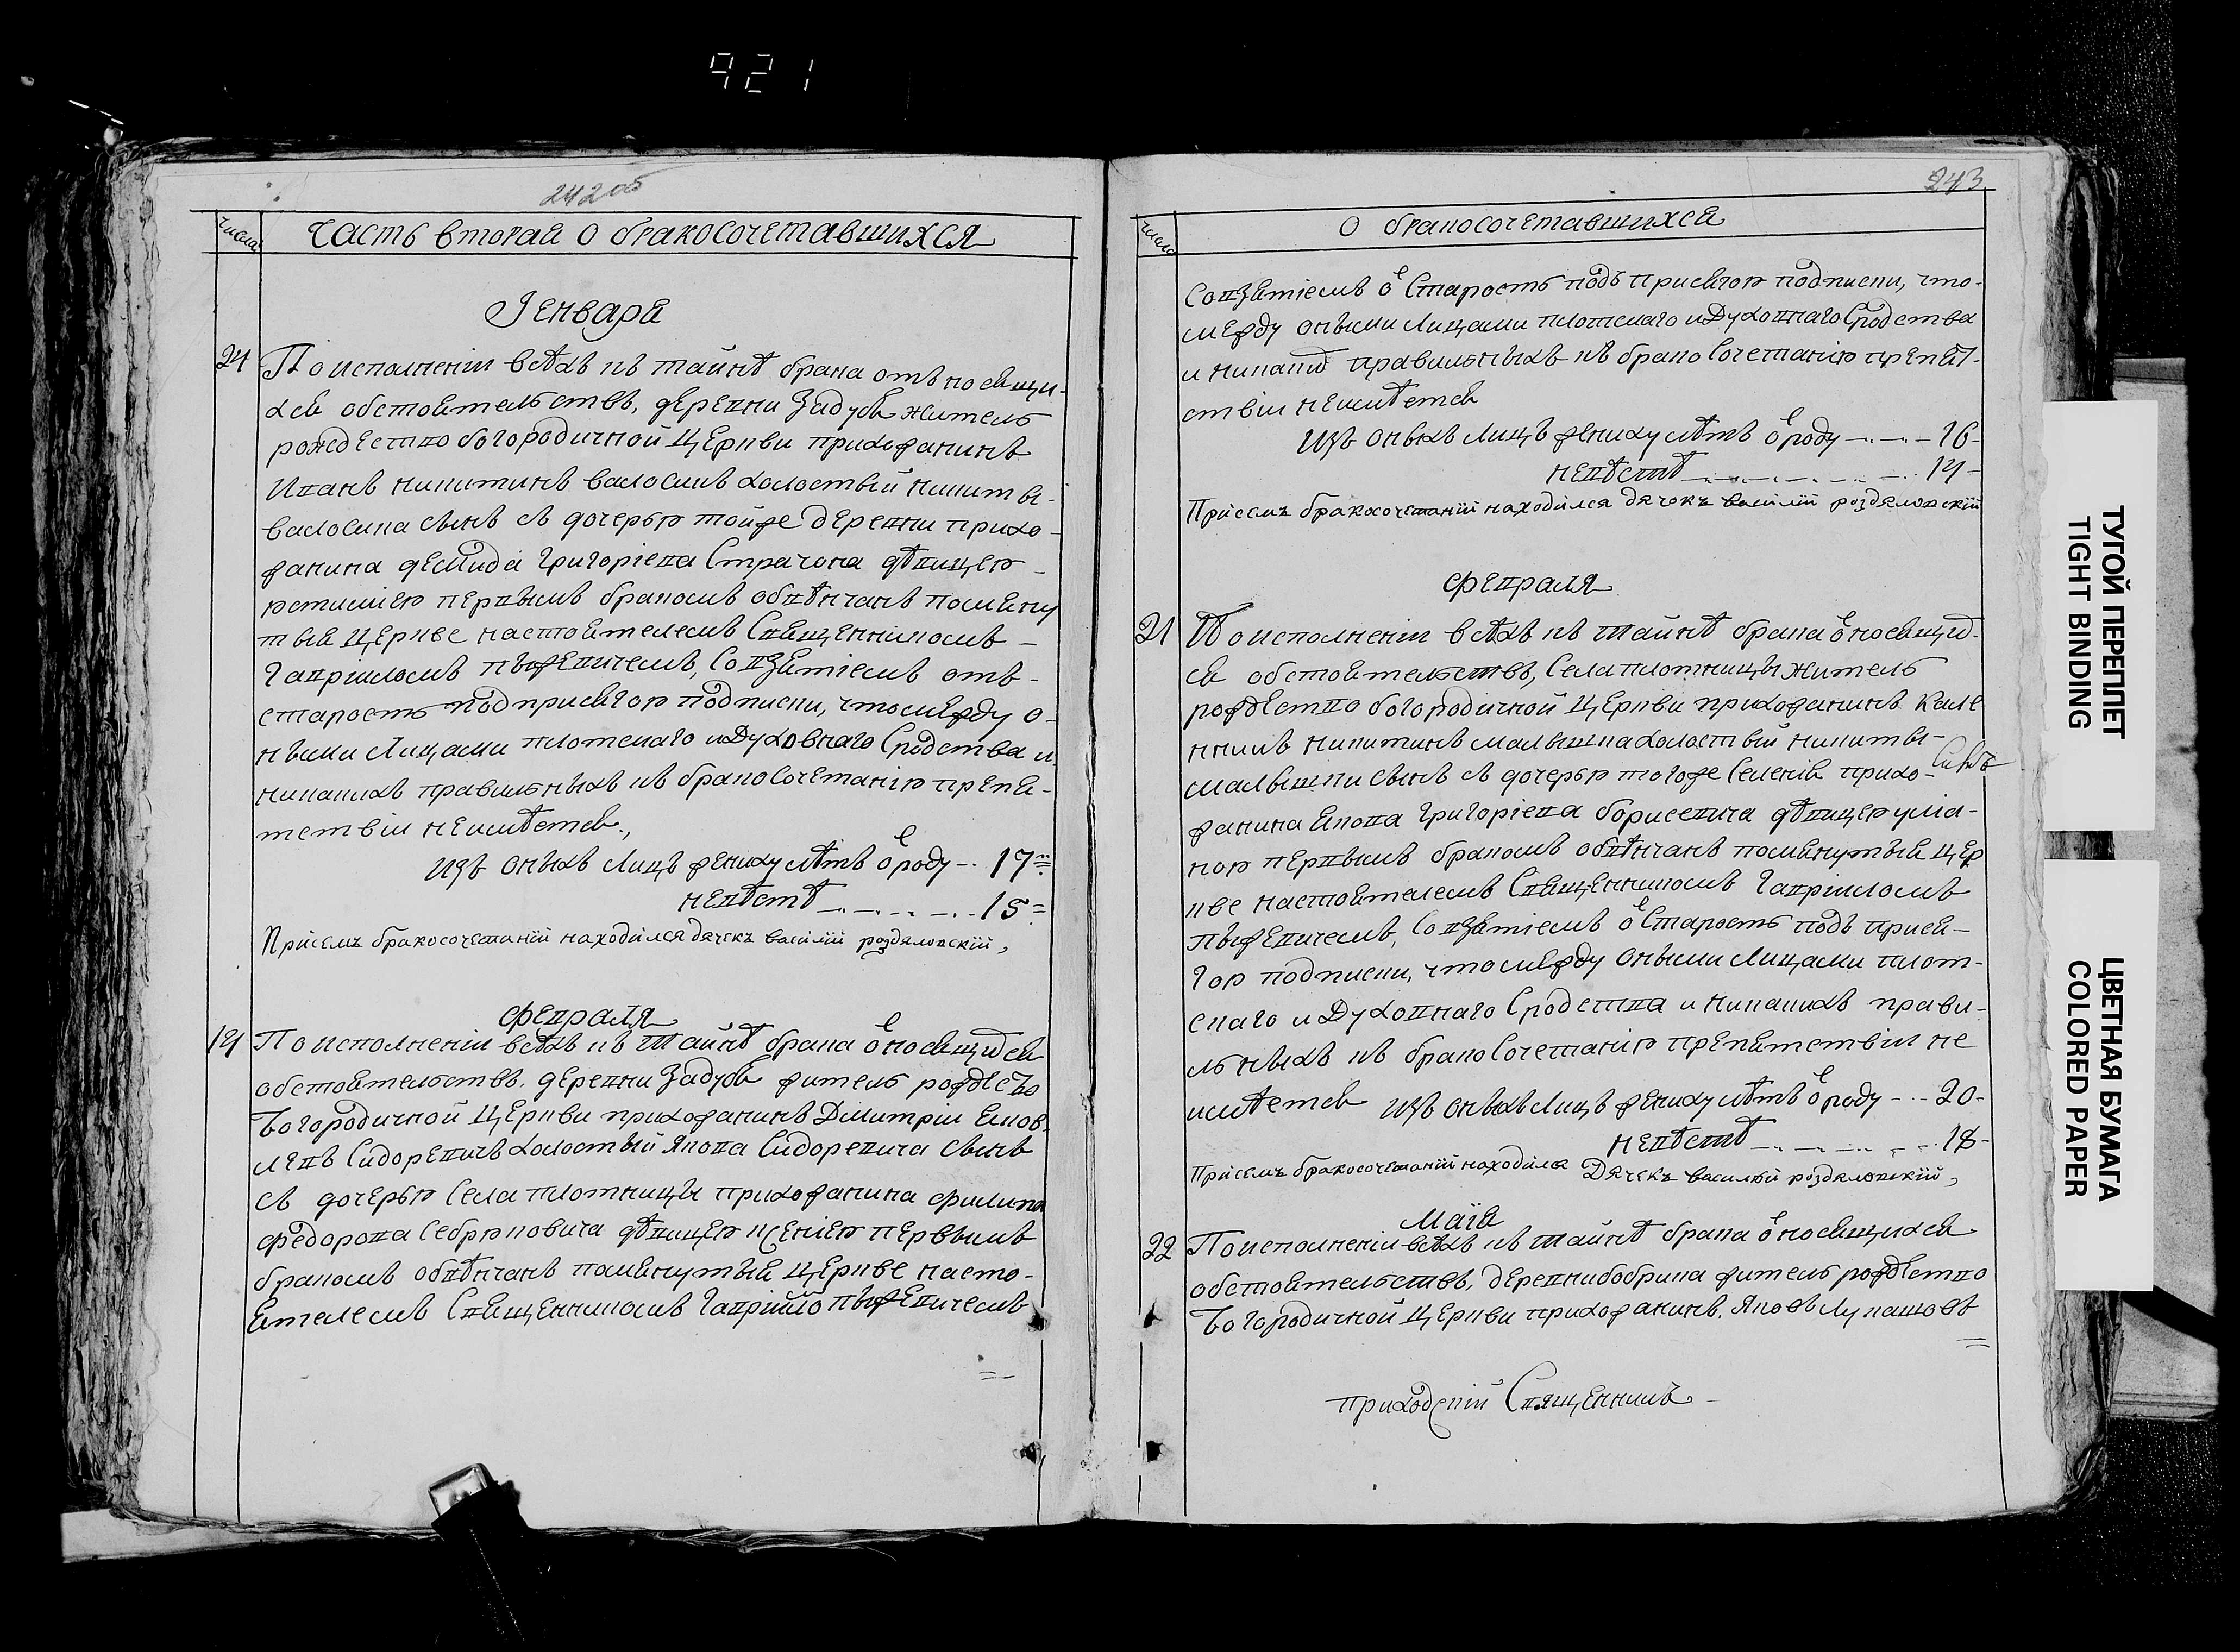 921
242 об
Числа
Часть вторая о бракосочетавшихся
Генваря
24 По исполненіи всѣхъ къ тайнѣ брака отъносящи-
хся обстоятельствъ, деревни Задубя житель
рождество богородичной Церкви прихожанинъ
Иванъ никитинъ васюсикъ холостый никиты-
васюсика сынъ съ дочерью тойже деревни прихо-
жанина демида григоріева Страчона дѣвицею
юстиміею первымъ бракомъ обвѣнчанъ помяну
тыя Церкве настоятелемъ Священникомъ
гавріиломъ пыжевичемъ, Совзятіемъ отъ-
старость под присягою подписки, что между о-
ными Лицами плотскаго и Духовнаго Сродства и
никакихъ правильныхъ къ бракоСочетанію препя-
тствіи неимѣется.,
изъ оныхъ Лицъ жениху лѣтъ ѿроду 17
невѣстѣ 15
Присемъ бракосочетаній находился дячекъ василій роздяловскій,
февраля
14 По исполненіи всѣхъ къ Тайнѣ брака ѿносящидся
обстоятельствъ. деревни Задубя житель рождество
Богородичной Церкви прихожанинъ Димитріи яков-
левъ Сидоревичъ холостый Якова Сидоревича сынъ
съ дочерью Села плотницы прихожанина филипа
федорова Себрюковича дѣвицею ксеніею первымъ
бракомъ обвѣнчанъ помянутыя Церкве насто-
ятелемъ Священникомъ гавріило пыжевичемъ
243
Числа
О бракосочетавшихся
Совзятіемъ ѿ Старость подъ присягою подписки, что-
между оными Лицами плотскаго и Духовнаго Сродства
и никаких правильныхъ къ бракоСочетанію препят-
ствіи неимѣется
Изъ оныхъ Лицъ жениху лѣтъ ѿроду 16
невѣстѣ 14
Присемъ бракосочетаній находился Дячекъ василій роздяловскій
февраля
21 По исполненіи всѣхъ къ тайнѣ брака ѿносящид-
ся обстоятельствъ, Села плотницы житель
рождество богородичной Церкви прихожанинъ Кале
нникъ никитинъ малышка холостый никиты-
малышки сынъ съ дочерью тогоже Селенія прихо-
Синъ
жанина якова григоріева борисевича дѣвицею улія-
ною первымъ бракомъ обвѣнчанъ помянутыя цер
кве настоятелемъ Священникомъ гавріиломъ
пыжевичемъ, Совзятіемъ ѿ Старость подъ прися-
гою подписки, что между оными Лицами плот-
скаго и Духовнаго Сродства и никакихъ прави-
льныхъ къ бракоСочетанію препятствіи не
имѣется изъ оныхъ Лицъ жениху лѣтъ ѿроду 20
невѣстѣ 18
Присемъ бракосочетаній находился Дячекъ василій роздяловскій,
Маія
22 По исполненіи всѣхъ къ тайнѣ брака ѿносящихся
обстоятельствъ, деревни бобрика житель рождество
Богородичной Церкви прихожанинъ. Яковъ Лукашовъ
приходскій Священникъ
ТУГОЙ ПЕРЕПЛЕТ
TIGHT BINDING
ЦВЕТНАЯ БУМАГА
COLORED PAPER